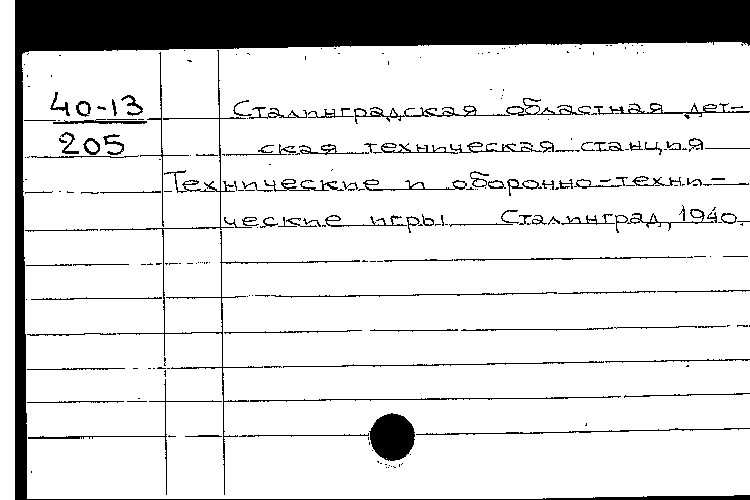 40-13
205
Сталинградская областная дет-
ская техническая станция
Технические и оборонно-техни-
ческие игры Сталинград, 1940.